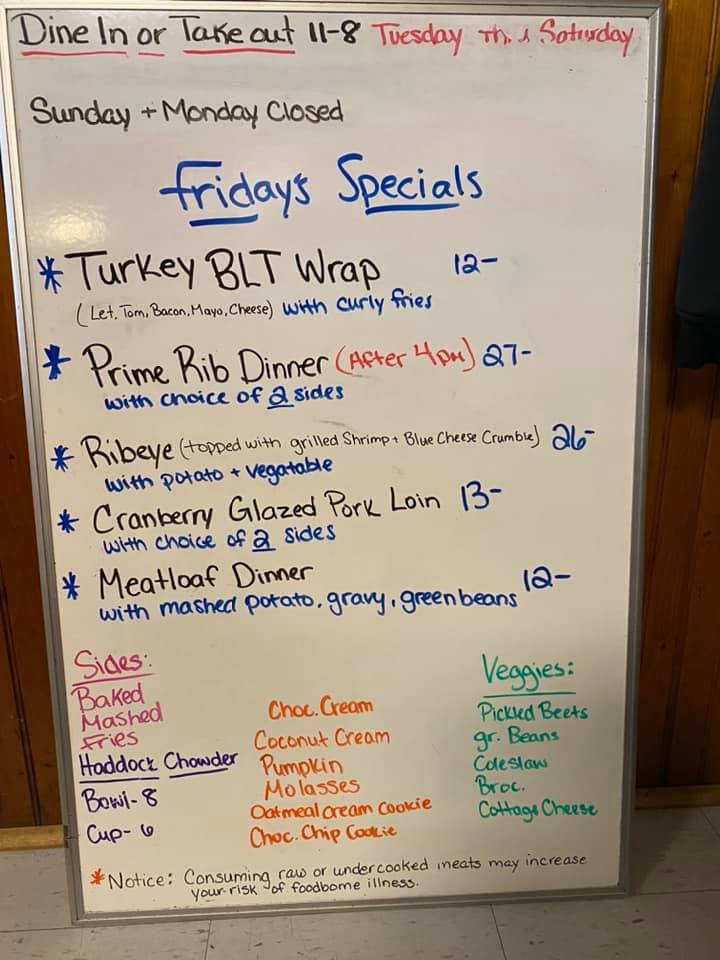 Dine In or Take out 11-8 Tuesday Th. & Saturday
Sunday + Monday Closed
Friday's Specials
* Turkey BLT Wrap 12-
(Let, Tom, Bacon, Mayo, Cheese) with curly fries
* Prime Rib Dinner (After 4pm) 27-
with choice of 2 sides
* Ribeye (topped with grilled Shrimp + Blue Cheese Crumble) 26-
with potato + vegatable
* Cranberry Glazed Pork Loin 13-
with choice of 2 sides
* Meatloaf Dinner 12-
with mashed potato, gravy, green beans
Sides:
Baked
Mashed
Fries
Haddock Chowder
Bowl- 8
Cup- 6
Choc. Cream
Coconut Cream
Pumpkin
Molasses
Oatmeal Cream Cookie
Choc. Chip Cookie
Veggies:
Pickled Beets
gr. Beans
Coleslaw
Broc.
Cottage Cheese
* Notice: Consuming raw or undercooked meats may increase
your risk of foodborne illness.